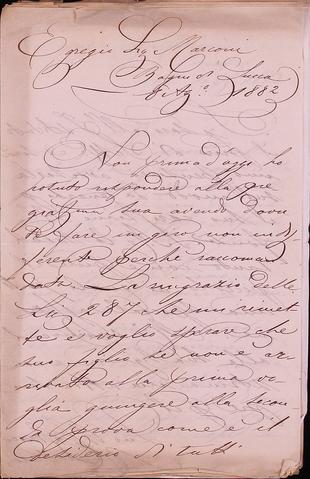 Egregio Sig Marconi
Bagni di Lucca
8 Ag.o 1882
Non prima d'oggi ho
potuto rispondere alla pre
giatma sua avendo dovu
to fare un giro non indif
ferente perche raccoman
data. La ringrazio delle
Lire 287 che mi rimet
te e voglio sperare che
suo figlio se non è ar
rivato alla prima vo
glia giungere alla secon
da prova come è il
desiderio di tutti